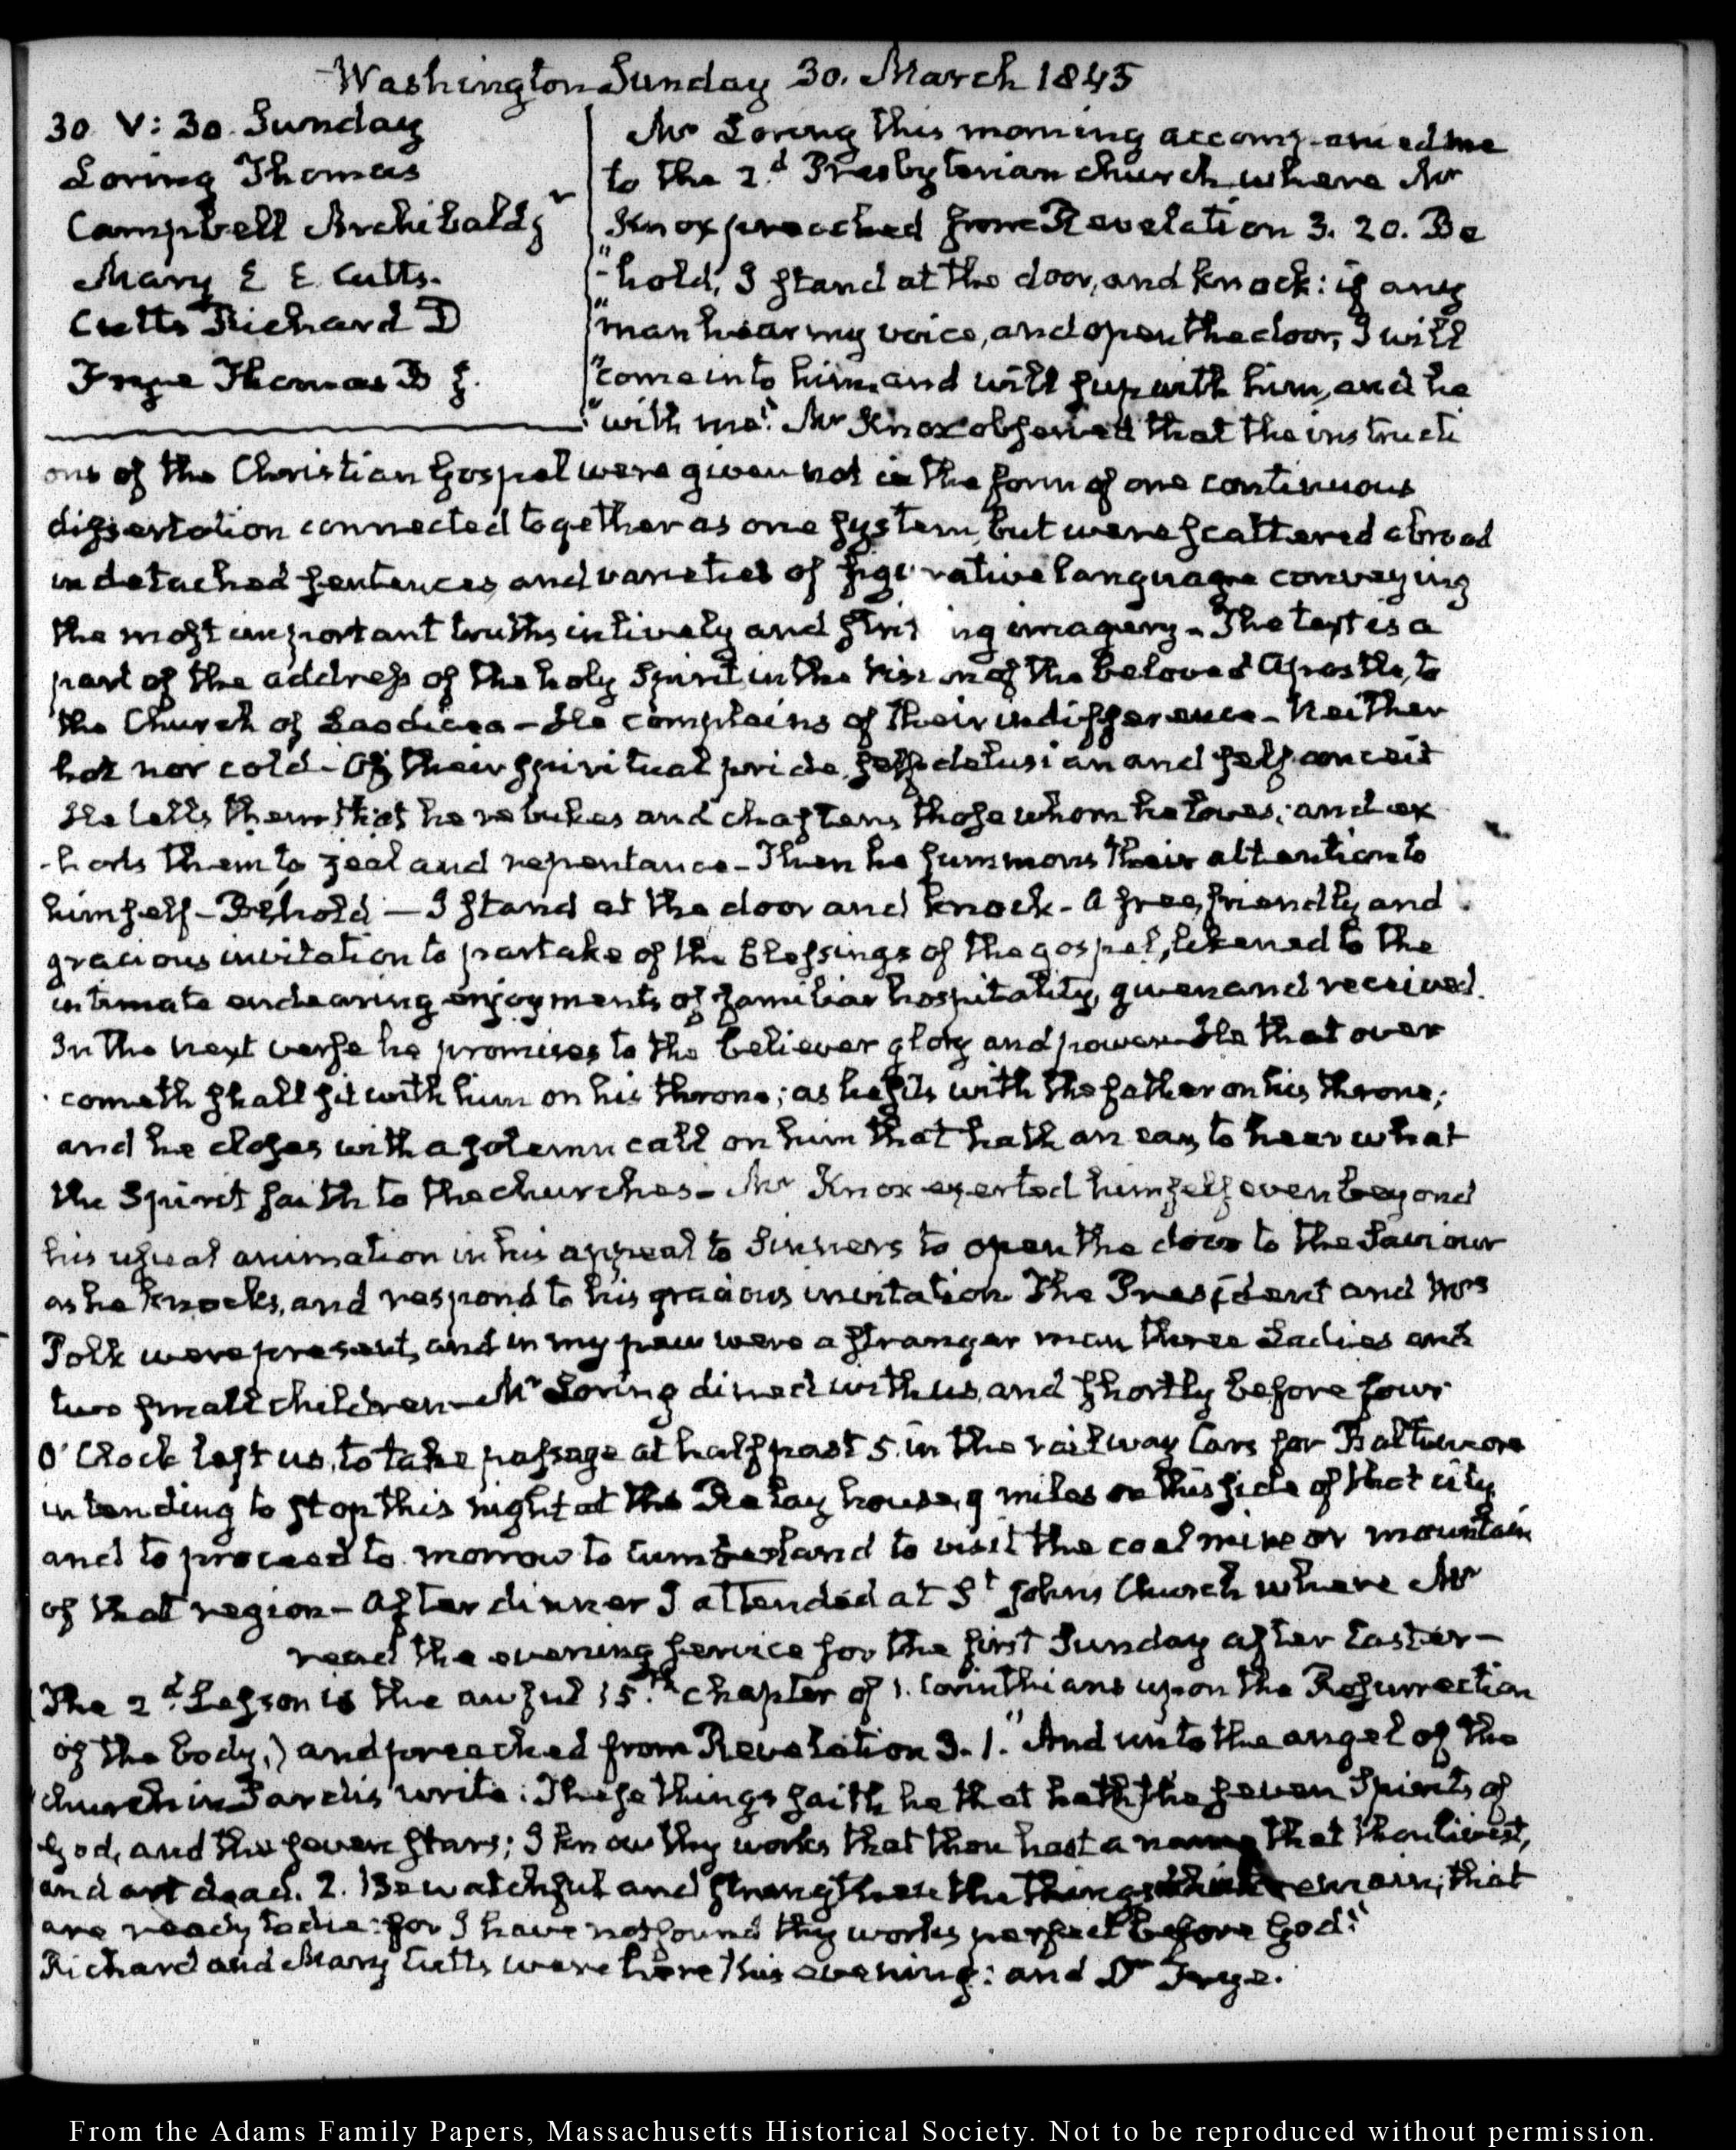 Washington Sunday 30. March 1845
30. V: 30. Sunday
Loring Thomas
Campbell Archibald jr
Mary E E Cutts.
Cutts Richard D
Frye Thomas B J.
Mr Loring this morning accompanied me
to the 2d. Presbyterian church where Mr
Knox preached from Revelation 3. 20. Be
"-hold, I stand at the door, and knock: if any
"man hear my voice, and open the door, I will
"come into him, and will sup with him, and he
"with me." Mr Knox observed that the instructi
ons of the Christian Gospel were given not in the form of one continuous
dissertation connected together as one system, but were scattered abroad
in detached sentences and varieties of figurative language conveying
the most important truths in lively and stri ing imagery - The text is a
part of the address of the holy Spirit in the vision of the beloved Apostle, to
the Church of Laodicea - He complains of their indifference - Neither
hot nor cold - Of their spiritual pride, self delusion and self conceit
He tells them that he rebukes and chastens those whom he loves; and ex
-horts them to zeal and repentance - Then he summons their attention to
himself - Behold - I stand at the door and knock - A free, friendly, and
gracious invitation to partake of the blessings of the gospel, likened to the
intimate endearing enjoyments of familiar hospitality, given and received.
In the next verse he promises to the believer glory and power - He that over
cometh shall sit with him on his throne; as he sits with the father on his throne;
and he closes with a solemn call on him that hath an ear, to hear what
the Spirit saith to the churches - Mr Knox exerted himself even beyond
his usual animation in his appeal to Sinners to open the door to the Saviour
as he knocks, and respond to his gracious invitation. The President and Mrs
Polk were present, and in my pew were a stranger man three Ladies and
two small children - Mr Loring dined with us, and shortly before four
O'Clock left us, to take passage at half past 5. in the railway Cars for Baltimore
intending to stop this night at the Relay house, 9 miles on this side of that city,
and to proceed to morrow to Cumberland to visit the coal mine or mountain
of that region - After dinner I attended at St Johns Church where Mr
read the evening service for the first Sunday after Easter -
The 2d. Lesson is the awful 15.th chapter of 1. Corinthians upon the Resurrection
of the body,) and preached from Revelation 3. 1. "And unto the angel of the
church in Sardis write: These things saith he that hath the seven Spirits of
God, and the seven stars; I know thy works that thou hast a name that thou livest,
and art dead. 2. Be watchful and strengthen the things which remain, that
are ready to die: for I have not found thy works perfect before God."
Richard and Mary Cutts were here this evening: and Dr Frye.
From the Adams Family Papers, Massachusetts Historical Society. Not to be reproduced without permission.